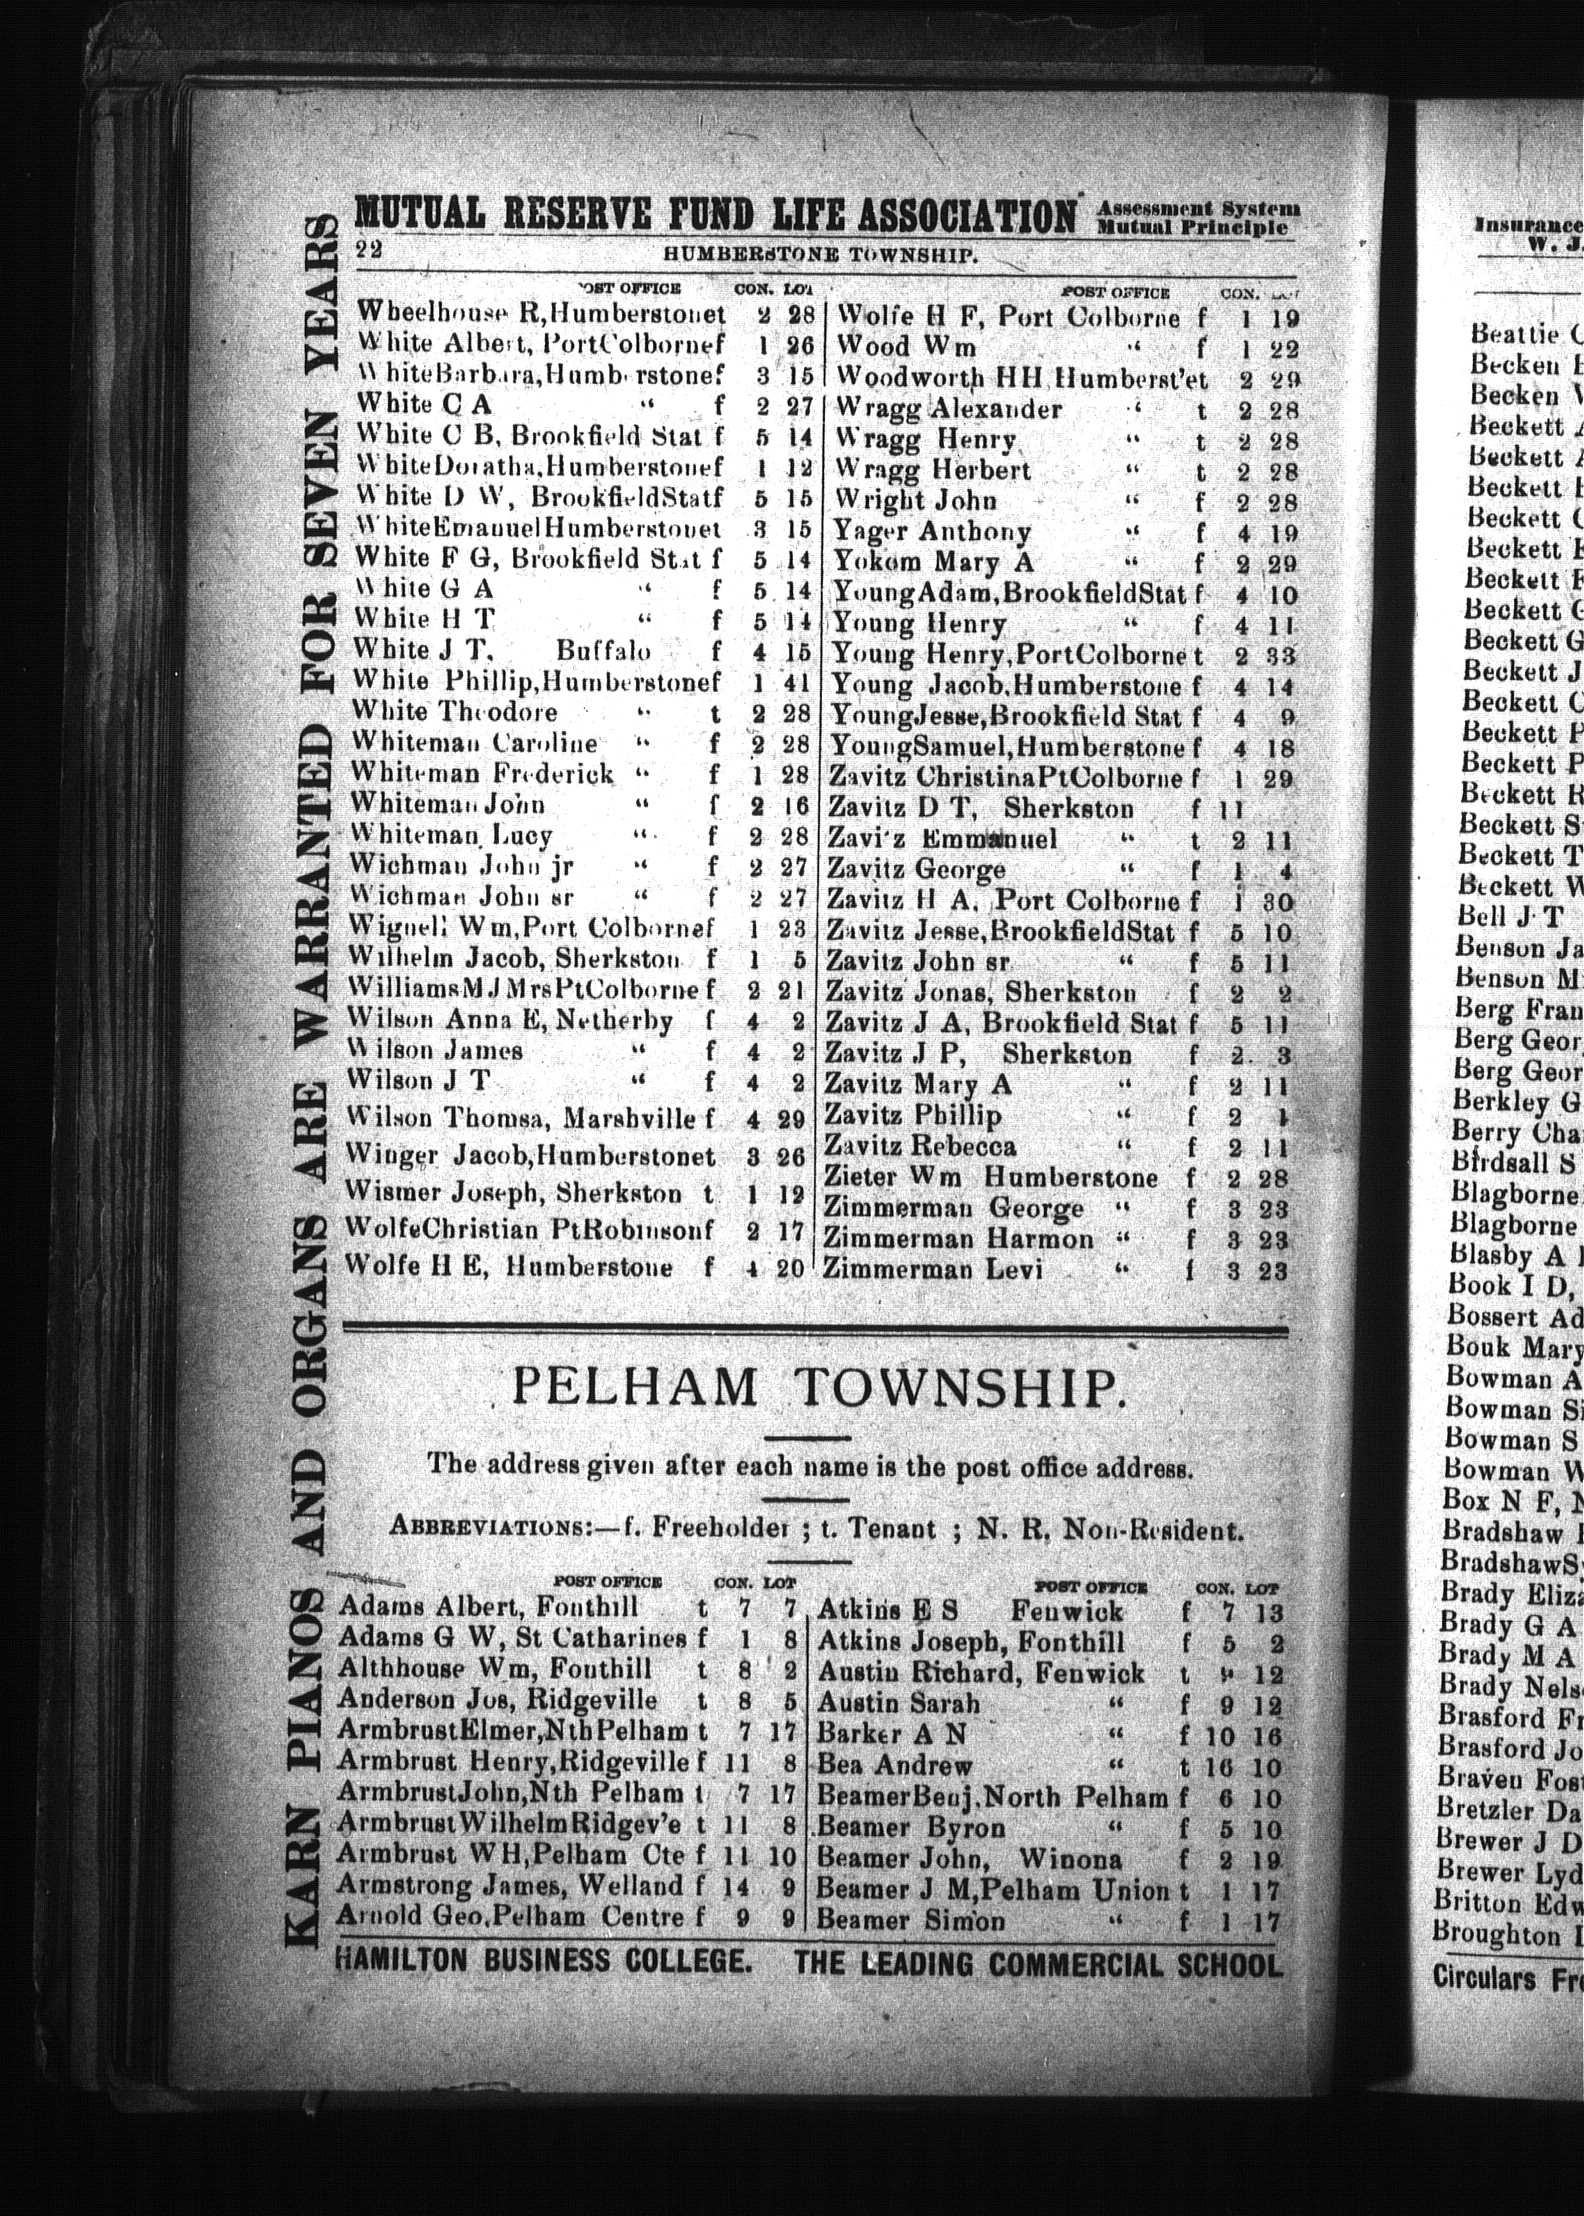 MUTUAL RESERVE FUND LIFE ASSOCIATION Assessment System
Mutual Principle
22 HUMBERSTONE TOWNSHIP.
KARN PIANOS AND ORGANS ARE WARRANTED FOR SEVEN YEARS
POST OFFICE CON. LOT
Wheelhouse R,Humberstonet 2 28
White Albert, PortColbornef 1 26
WhiteBarbara,Humberstonef 3 15
White C A “ f 2 27
White C B, Brookfield Stat f 5 14
WhiteDoratha,Humberstonef 1 12
White D W, BrookfieldStatf 5 15
WhiteEmanuelHumberstonet 3 15
White F G, Brookfield Stat f 5 14
White G A “ f 5 14
White H T “ f 5 14
White J T, Buffalo f 4 15
White Phillip,Humberstonef 1 41
White Theodore “ t 2 28
Whiteman Caroline “ f 2 28
Whiteman Frederick “ f 1 28
Whiteman John “ f 2 16
Whiteman Lucy “ f 2 28
Wichman John jr “ f 2 27
Wichman John sr “ f 2 27
Wignell Wm,Port Colbornef 1 23
Wilhelm Jacob, Sherkston f 1 5
WilliamsMJMrsPtColborne f 2 21
Wilson Anna E, Netherby f 4 2
Wilson James “ f 4 2
Wilson J T “ f 4 2
Wilson Thomsa, Marshville f 4 29
Winger Jacob,Humberstonet 3 26
Wismer Joseph, Sherkston t 1 12
WolfeChristian PtRobinsonf 2 17
Wolfe H E, Humberstone f 4 20
POST OFFICE CON. LOT
Wolfe H F, Port Colborne f 1 19
Wood Wm “ f 1 22
Woodworth HH Humberst'et 2 29
Wragg Alexander “ t 2 28
Wragg Henry “ t 2 28
Wragg Herbert “ t 2 28
Wright John “ f 2 28
Yager Anthony “ f 4 19
Yokom Mary A “ f 2 29
YoungAdam,BrookfieldStat f 4 10
Young Henry “ f 4 11
Young Henry,PortColborne t 2 33
Young Jacob,Humberstone f 4 14
YoungJesse,Brookfield Stat f 4 9
YoungSamuel,Humberstone f 4 18
Zavitz ChristinaPtColborne f 1 29
Zavitz D T, Sherkston f 11
Zavitz Emmanuel “ t 2 11
Zavitz George “ f 1 4
Zavitz H A, Port Colborne f 1 30
Zavitz Jesse,BrookfieldStat f 5 10
Zavitz John sr “ f 5 11
Zavitz Jonas, Sherkston f 2 2
Zavitz J A, Brookfield Stat f 5 11
Zavitz J P, Sherkston f 2 3
Zavitz Mary A “ f 2 11
Zavitz Phillip “ f 2 1
Zavitz Rebecca “ f 2 11
Zieter Wm Humberstone f 2 28
Zimmerman George “ f 3 23
Zimmerman Harmon “ f 3 23
Zimmerman Levi “ f 3 23
PELHAM TOWNSHIP.
The address given after each name is the post office address.
ABBREVIATIONS:—f. Freeholder ; t. Tenant ; N. R. Non-Resident.
POST OFFICE CON. LOT
Adams Albert, Fonthill t 7 7
Adams G W, St Catharines f 1 8
Althhouse Wm, Fonthill t 8 2
Anderson Jos, Ridgeville t 8 5
ArmbrustElmer,NthPelham t 7 17
Armbrust Henry,Ridgeville f 11 8
ArmbrustJohn,Nth Pelham t 7 17
ArmbrustWilhelmRidgev'e t 11 8
Armbrust WH,Pelham Cte f 11 10
Armstrong James, Welland f 14 9
Arnold Geo,Pelham Centre f 9 9
POST OFFICE CON. LOT
Atkins E S Fenwick f 7 13
Atkins Joseph, Fonthill f 5 2
Austin Richard, Fenwick t 12
Austin Sarah “ f 9 12
Barker A N “ f 10 16
Bea Andrew “ t 16 10
BeamerBenj,North Pelham f 6 10
Beamer Byron “ f 5 10
Beamer John, Winona f 2 19
Beamer J M,Pelham Union t 1 17
Beamer Simon “ f 1 17
HAMILTON BUSINESS COLLEGE. THE LEADING COMMERCIAL SCHOOL
Insurance
W. J.
Beattie
Becken
Becken
Beckett
Beckett
Beckett
Beckett
Beckett
Beckett
Beckett
Beckett G
Beckett J
Beckett
Beckett P
Beckett P
Beckett R
Beckett S
Beckett T
Beckett W
Bell J T
Benson Ja
Benson M
Berg Fran
Berg Geor
Berg Geor
Berkley G
Berry Cha
Birdsall S
Blagborne
Blagborne
Blasby A
Book I D,
Bossert Ad
Bouk Mary
Bowman A
Bowman Si
Bowman S
Bowman W
Box N F,
Bradshaw
BradshawSy
Brady Eliza
Brady G A
Brady M A
Brady Nels
Brasford Fr
Brasford Jo
Braven Fost
Bretzler Da
Brewer J D
Brewer Lyd
Britton Edw
Broughton
Circulars Fre